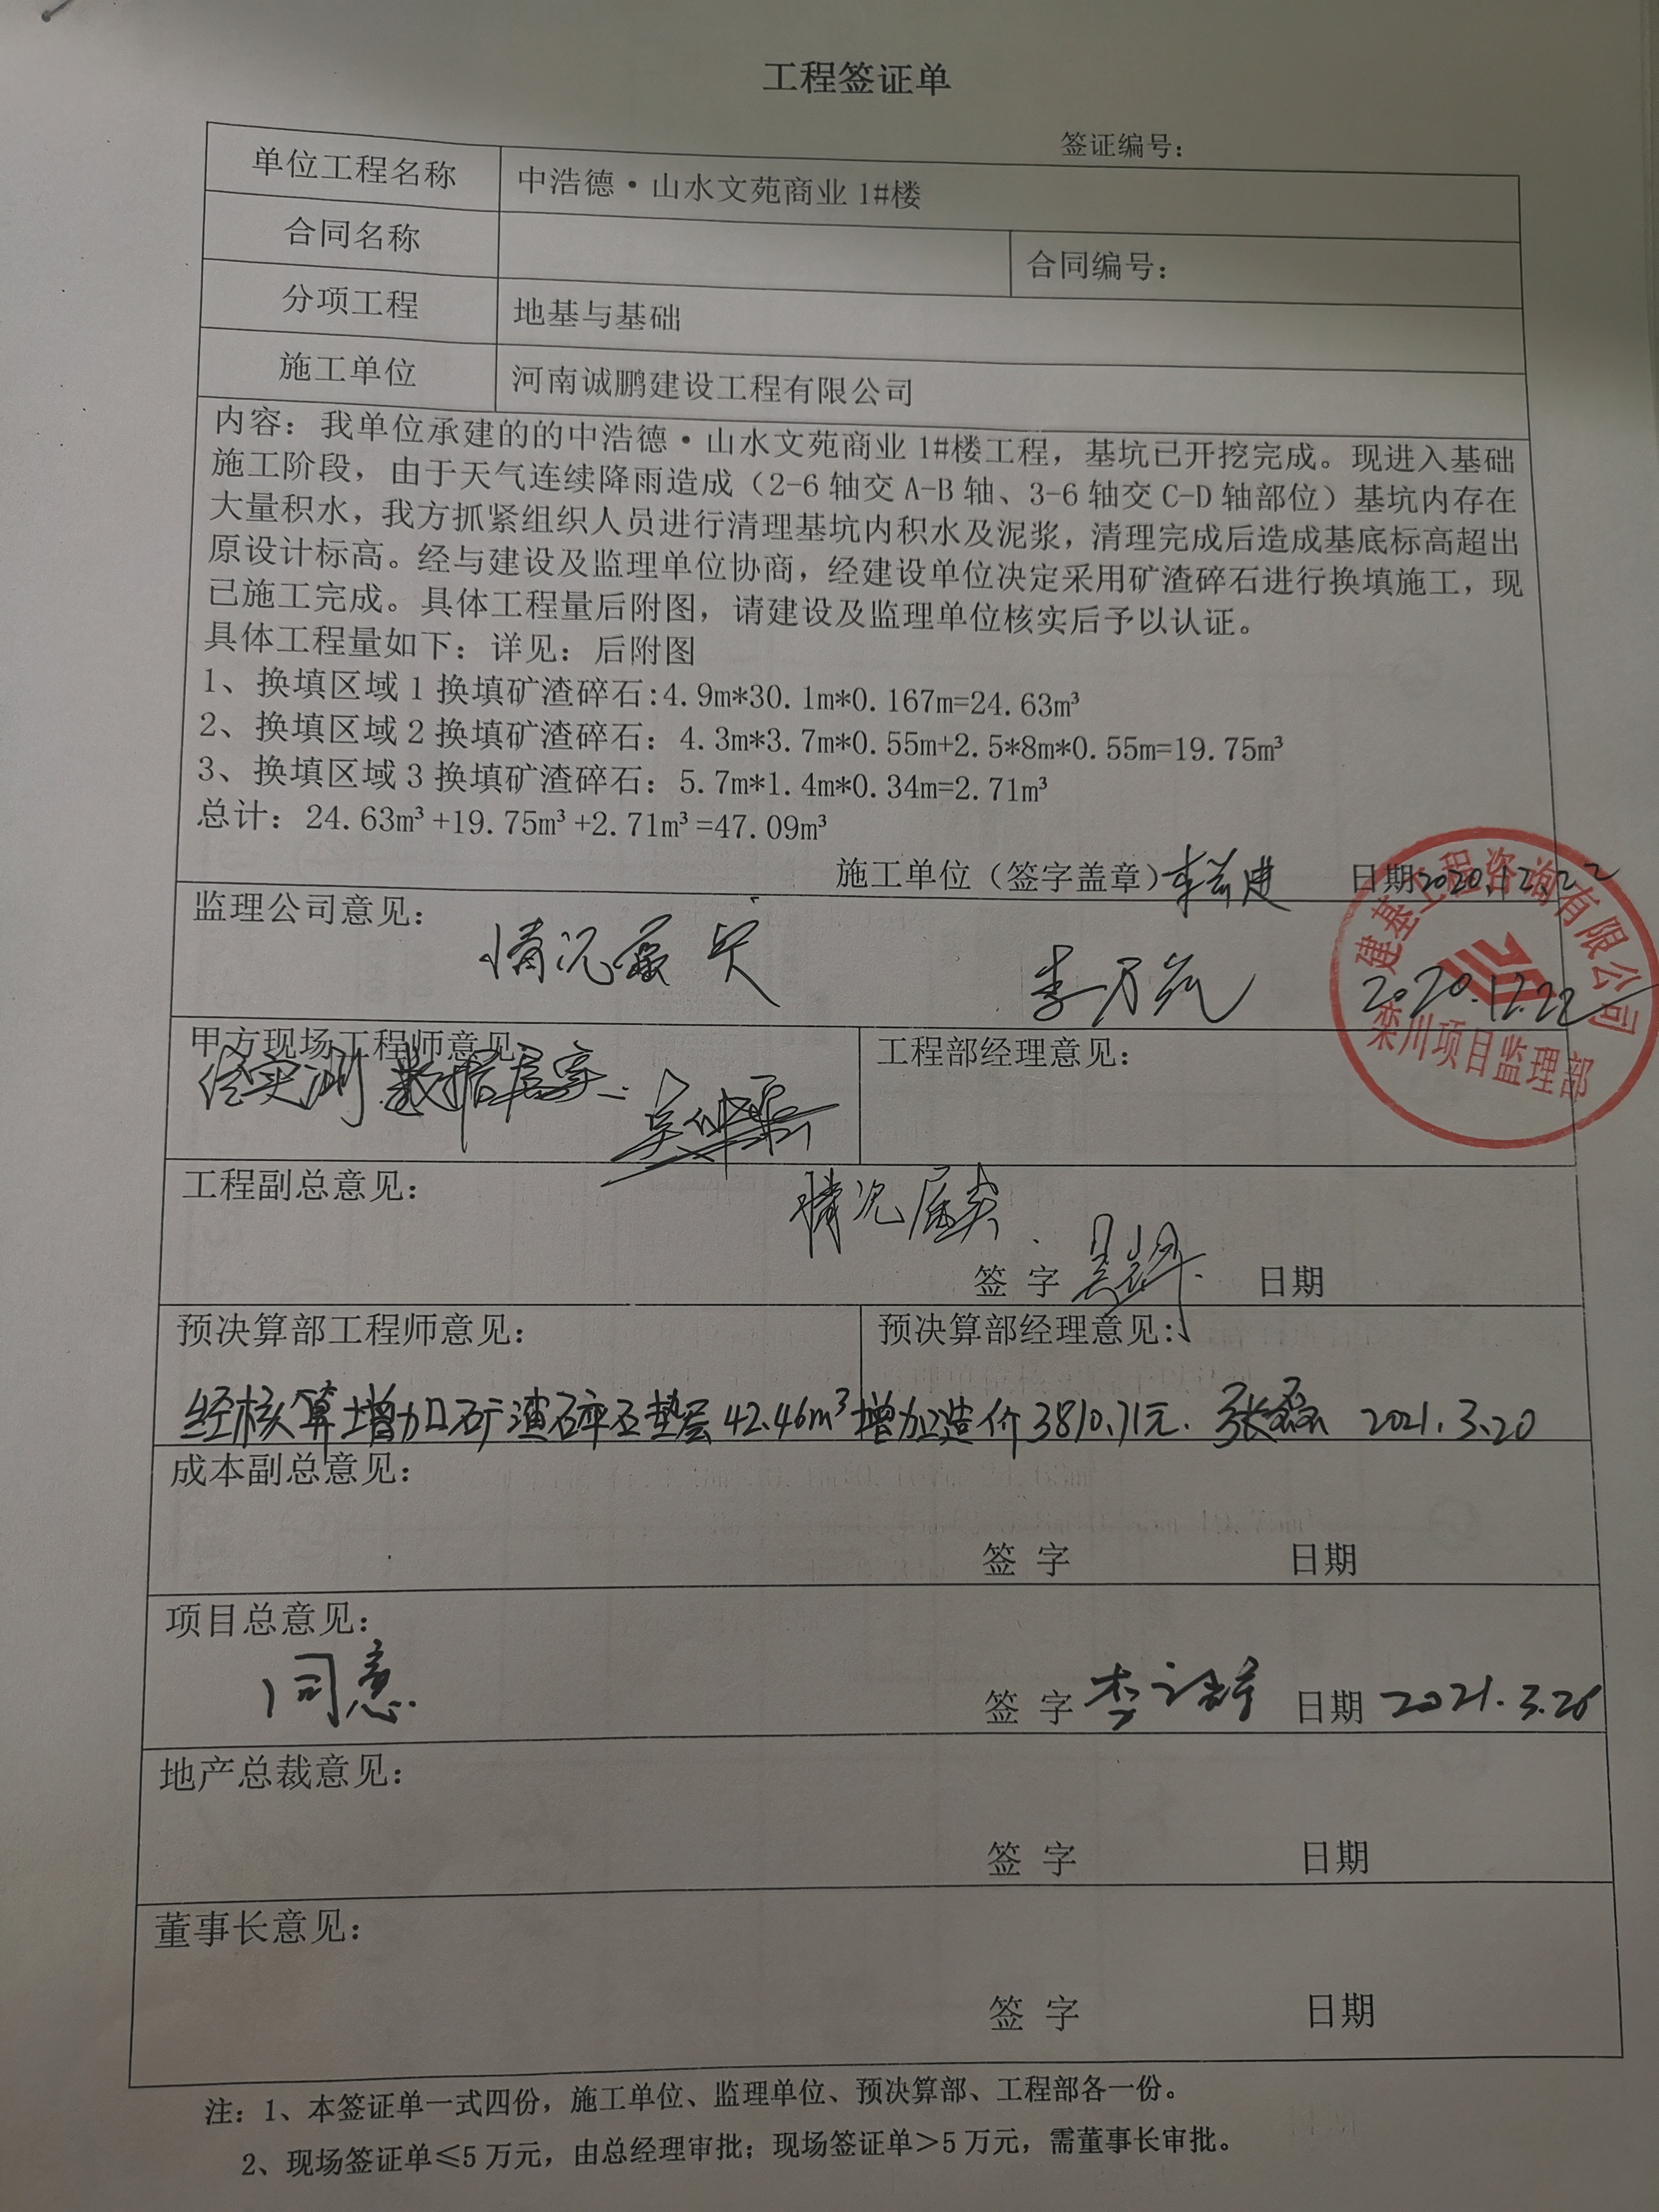 工程签证单
签证编号：
单位工程名称 中浩德·山水文苑商业1#楼
合同名称 合同编号：
分项工程 地基与基础
施工单位 河南诚鹏建设工程有限公司
内容：我单位承建的的中浩德·山水文苑商业1#楼工程，基坑已开挖完成。现进入基础
施工阶段，由于天气连续降雨造成（2-6轴交A-B轴、3-6轴交C-D轴部位）基坑内存在
大量积水，我方抓紧组织人员进行清理基坑内积水及泥浆，清理完成后造成基底标高超出
原设计标高。经与建设及监理单位协商，经建设单位决定采用矿渣碎石进行换填施工，现
已施工完成。具体工程量后附图，请建设及监理单位核实后予以认证。
具体工程量如下：详见：后附图
1、换填区域1换填矿渣碎石:4.9m*30.1m*0.167m=24.63m³
2、换填区域2换填矿渣碎石：4.3m*3.7m*0.55m+2.5*8m*0.55m=19.75m³
3、换填区域3换填矿渣碎石：5.7m*1.4m*0.34m=2.71m³
总计：24.63m³+19.75m³+2.71m³=47.09m³
施工单位（签字盖章） 日期2020.12.22
建基工程咨询有限公司
栾川项目监理部
监理公司意见：
情况属实 2020.12.22
甲方现场工程师意见： 工程部经理意见：
经实测数据属实
工程副总意见：
情况属实
签 字 日期
预决算部工程师意见： 预决算部经理意见：
经核算增加矿渣碎石垫层42.46m³增加造价3810.71元. 张磊 2021.3.20
成本副总意见：
签 字 日期
项目总意见：
同意
签 字 日期 2021.3.20
地产总裁意见：
签 字 日期
董事长意见：
签 字 日期
注：1、本签证单一式四份，施工单位、监理单位、预决算部、工程部各一份。
2、现场签证单≤5万元，由总经理审批；现场签证单＞5万元，需董事长审批。